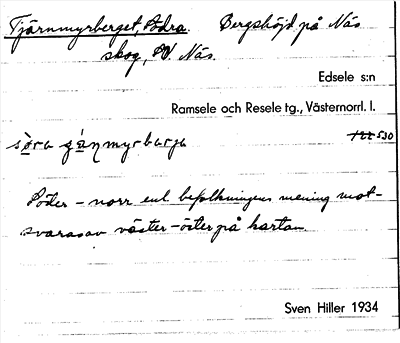 Tjärnmyrberget, Södra. Bergshöjd på Näs
skog, SV. Näs.
Edsele s:n
Ramsele och Resele tg., Västernorrl. l.
530
Söder – norr enl. befolkningens mening mot-
svaras av väster – öster på kartan
Sven Hiller 1934